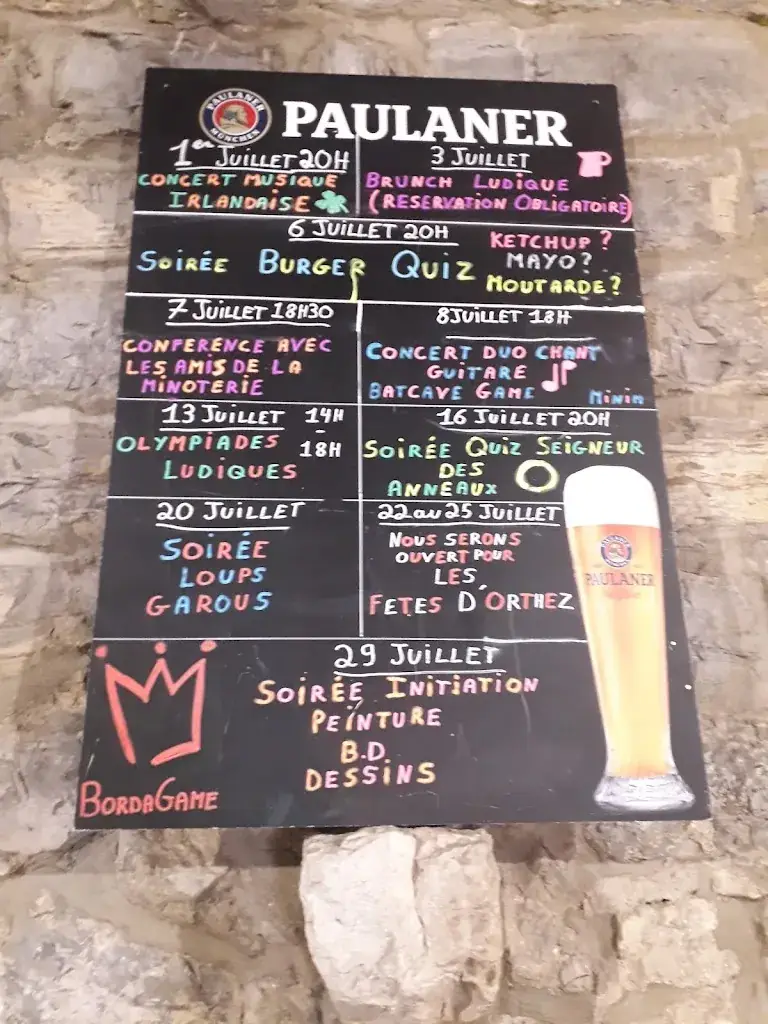 PAULANER
MÜNCHEN
PAULANER
1er JUILLET 20H
CONCERT MUSIQUE
IRLANDAISE
3 JUILLET
BRUNCH LUDIQUE
(RESERVATION OBLIGATOIRE)
6 JUILLET 20H
SOIRÉE BURGER QUIZ
KETCHUP ?
MAYO ?
MOUTARDE ?
7 JUILLET 18H30
CONFERENCE AVEC
LES AMIS DE LA
MINOTERIE
8 JUILLET 18H
CONCERT DUO CHANT
GUITARE
BATCAVE GAME
MINIM
13 JUILLET 14H
-
18H
OLYMPIADES
LUDIQUES
16 JUILLET 20H
SOIRÉE QUIZ SEIGNEUR
DES
ANNEAUX
20 JUILLET
SOIRÉE
LOUPS
GAROUS
22 au 25 JUILLET
NOUS SERONS
OUVERT POUR
LES
FETES D'ORTHEZ
PAULANER
29 JUILLET
SOIRÉE INITIATION
PEINTURE
B.D.
DESSINS
BORDAGAME